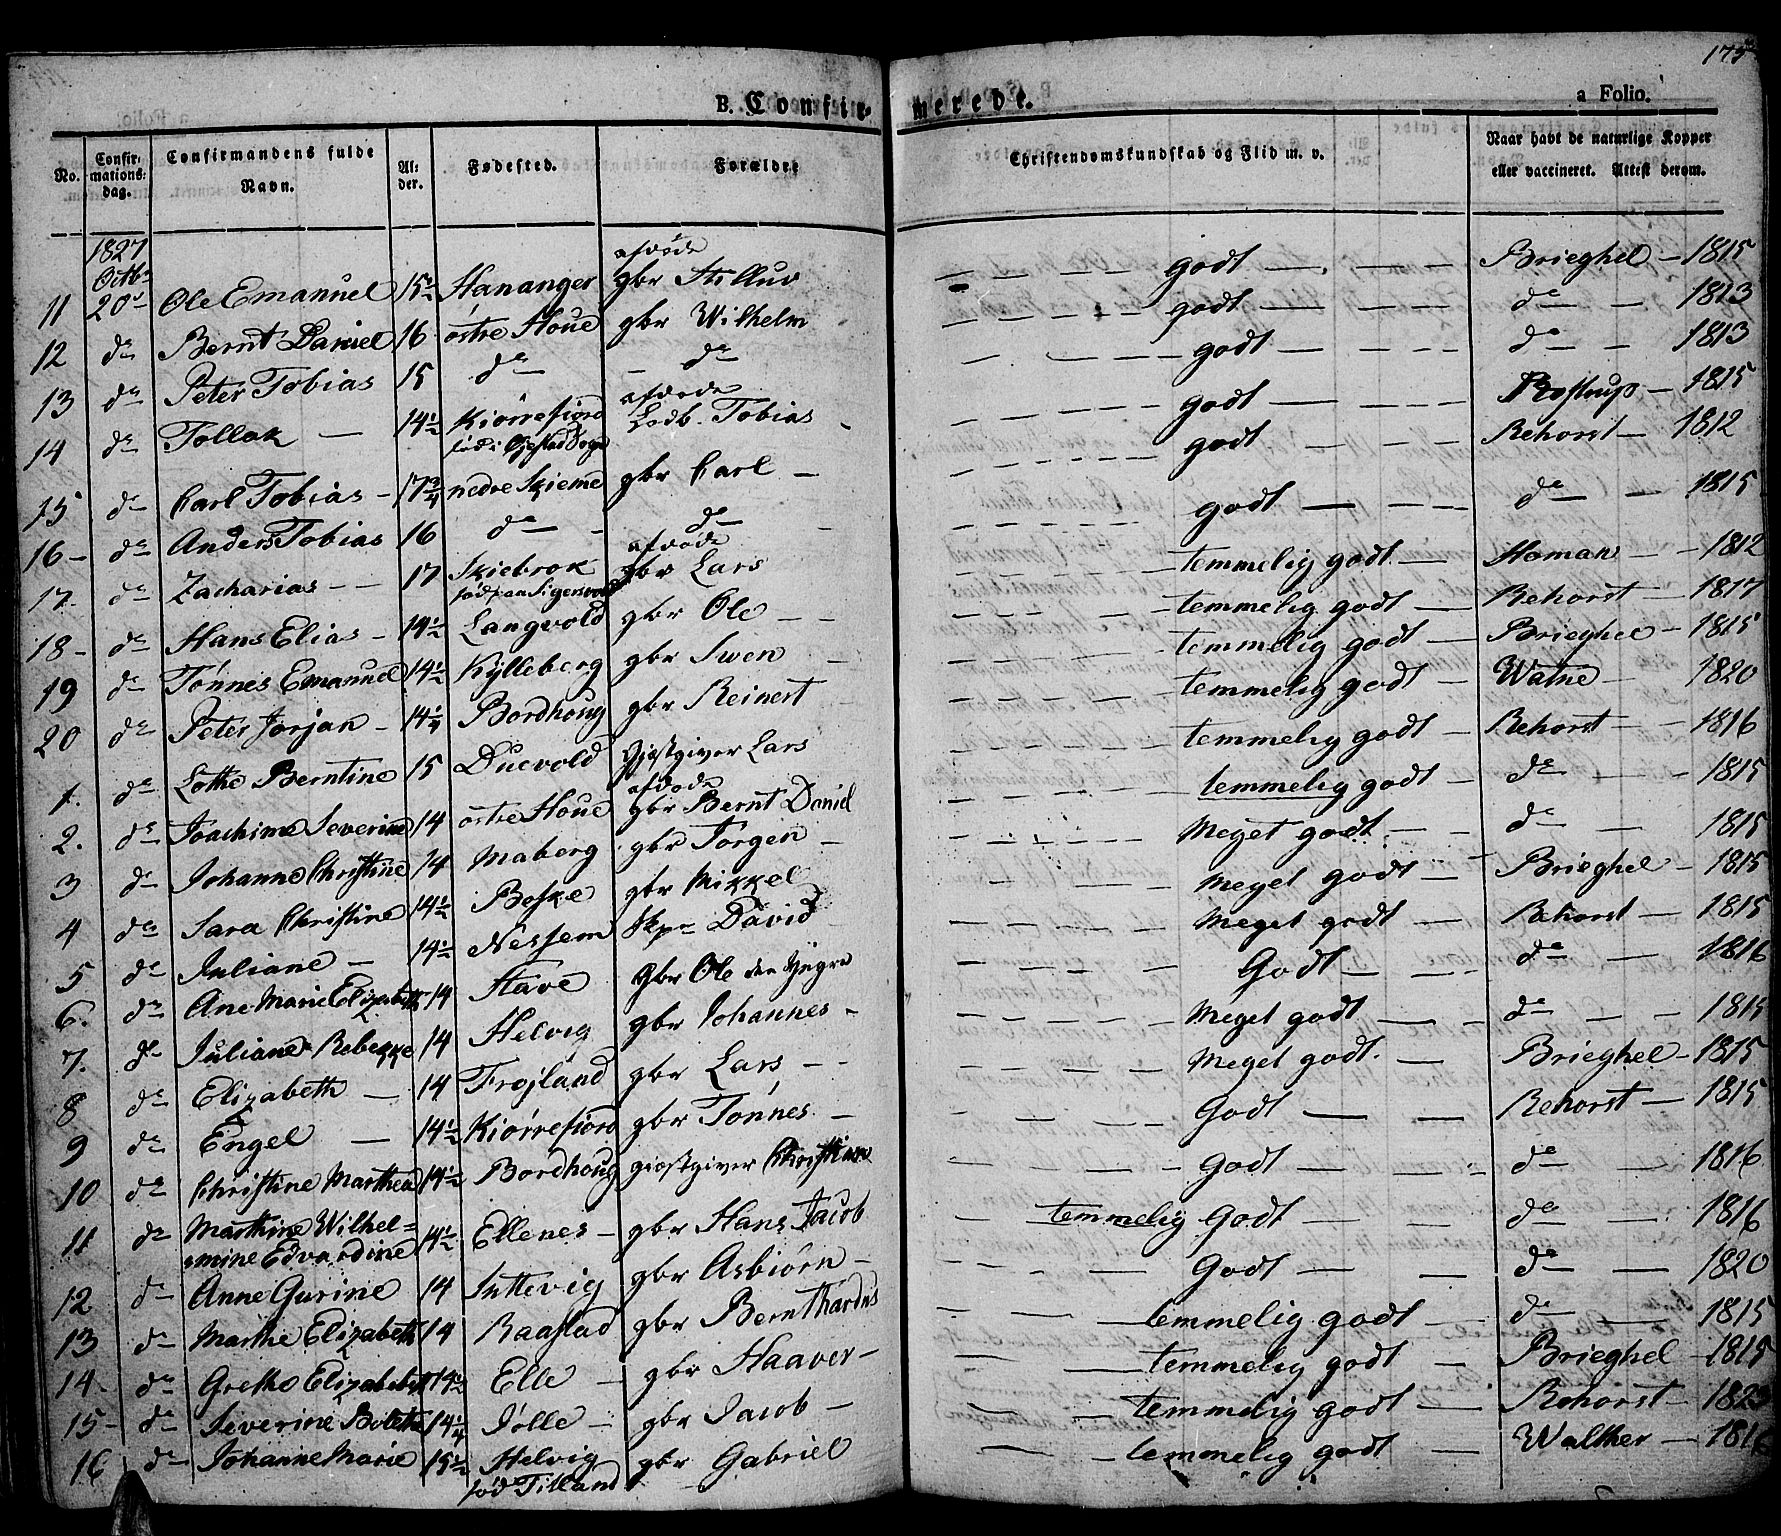 175
B. Confir-
meredt.
a Folio.
No.
Confir-
mations-
dag.
Confirmandens fulde
Navn.
Al-
der.
Fødested.
Forældre
Christendomskundskab og Flid m. v.
Naar havt de naturlige Kopper
eller vaccineret. Attest derom.
1827
Octbr
afdøde
11 20de Ole Emanuel 15½ Hananger gbr godt Brieghel 1815
12 do Bernt Daniel 16 østre Houe gbr Wilhelm godt do 1813
13 do Peter Tobias 15 do do godt do 1813
afdøde
14 do Tollak 14½ Kiørrefiord Tobias godt Rostrup 1815
15 do Carl Tobias 17¾ nedre Skieme gbr Carl godt Rehorst 1812
16 do Anders Tobias 16 do do godt do 1815
afdøde
17 do Zacharias 17 Skiebrok gbr Lars temmelig godt Homan 1812
18 do Hans Elias 14½ Langvold gbr Ole temmelig godt Rehorst 1817
19 do Tønnes Emanuel 14½ Kylleberg gbr Swen temmelig godt Brieghel 1815
20 do Peter Jørjan 14¼ Bordhoug gbr Reinert temmelig godt Watne 1820
1. do Lothe Berntine 15 Duevold Giestgiver Lars temmelig godt Rehorst 1816
afdøde
2. do Joachime Severine 14 østre Houe gbr Bernt David temmelig godt do 1815
3 do Johanne Christine 14 Maberg gbr Jørgen Meget godt do 1815
4 do Sara Christine 14½ Boske gbr Mikkel meget godt Brieghel 1815
5 do Juliane 14½ Nessem Skpr David meget godt Rehorst 1815
6. do Ane Marie Elizabeth 14 Stave gbr Ole den Yngre Godt do 1816
7. do Juliane Rebekke 14 Helvig gbr Johannes Meget godt do 1815
8 do Elizabeth 14 Frøjland gbr Lars Meget godt. Brieghel 1815
9 do Engel 14½ Kiørrefiord gbr Tønnes Godt Rehorst 1815
10 do Christine Marthea 14½ Bordhoug giestgiver Christian Godt do 1816
11 do Marthine Wilhel=
mine Edvardine 14½ Ellenes gbr Hans Jacob temmelig Godt do 1816
12 do Anne Gurine 14 Juttevig gbr Asbiørn Godt do 1820
13 do Marthe Elizabeth 14 Raastad gbr Bernthardus temmelig godt do 1815
14 do Grethe Elizabeth 14½ Elle gbr Haaver temmelig godt Brieghel 1815
15 do Severine Bolethe 14¼ Jølle gbr Jacob temmelig godt Rehorst 1823
16 do Johanne Marie 15½ Helvig gbr Gabriel temmelig godt Walther 1816